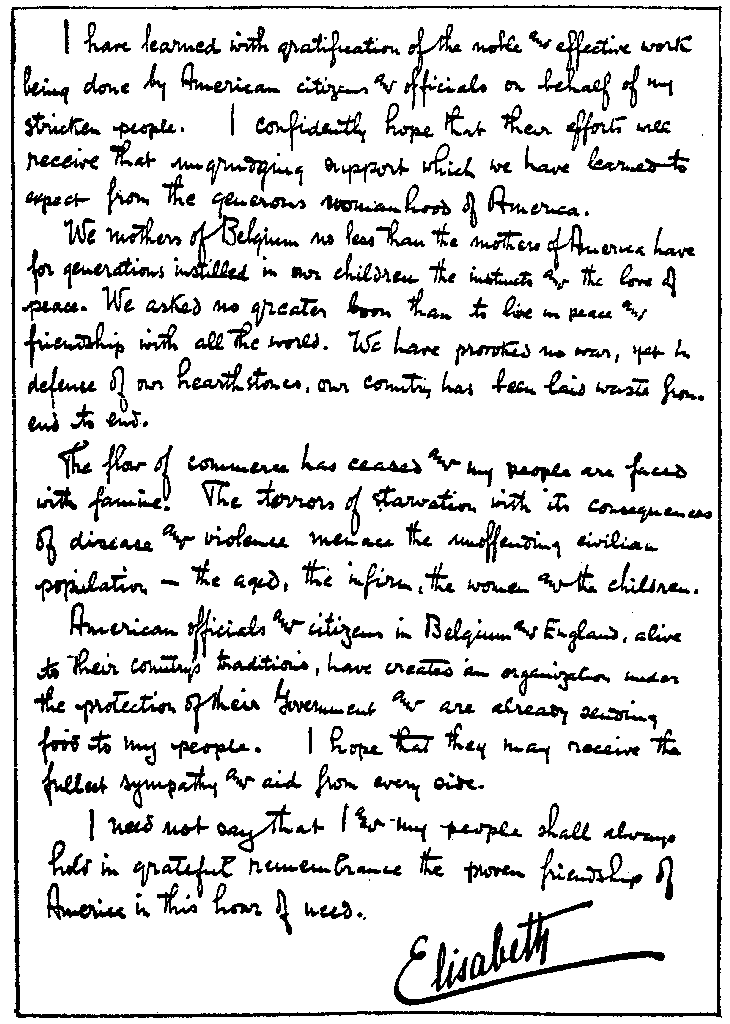 I have learned with gratification of the noble and effective work
being done by American citizens and officials on behalf of my
stricken people. I confidently hope that their efforts will
receive that ungrudging support which we have learned to
expect from the generous womanhood of America.
We mothers of Belgium no less than the mothers of America have
for generations instilled in our children the instincts and the love of
peace. We asked no greater boon than to live in peace and
friendship with all the world. We have provoked no war, yet in
defense of our hearthstones, our country has been laid waste from
end to end.
The flow of commerce has ceased and my people are faced
with famine. The terrors of starvation with its consequences
of disease and violence menace the unoffending civilian
population – the aged, the infirm, the women and the children.
American officials and citizens in Belgium and England, alive
to their country's traditions, have created an organization under
the protection of their Government and are already sending
food to my people. I hope that they may receive the
fullest sympathy and aid from every side.
I need not say that I and my people shall always
hold in grateful remembrance the proven friendship of
America in this hour of need.
Elisabeth